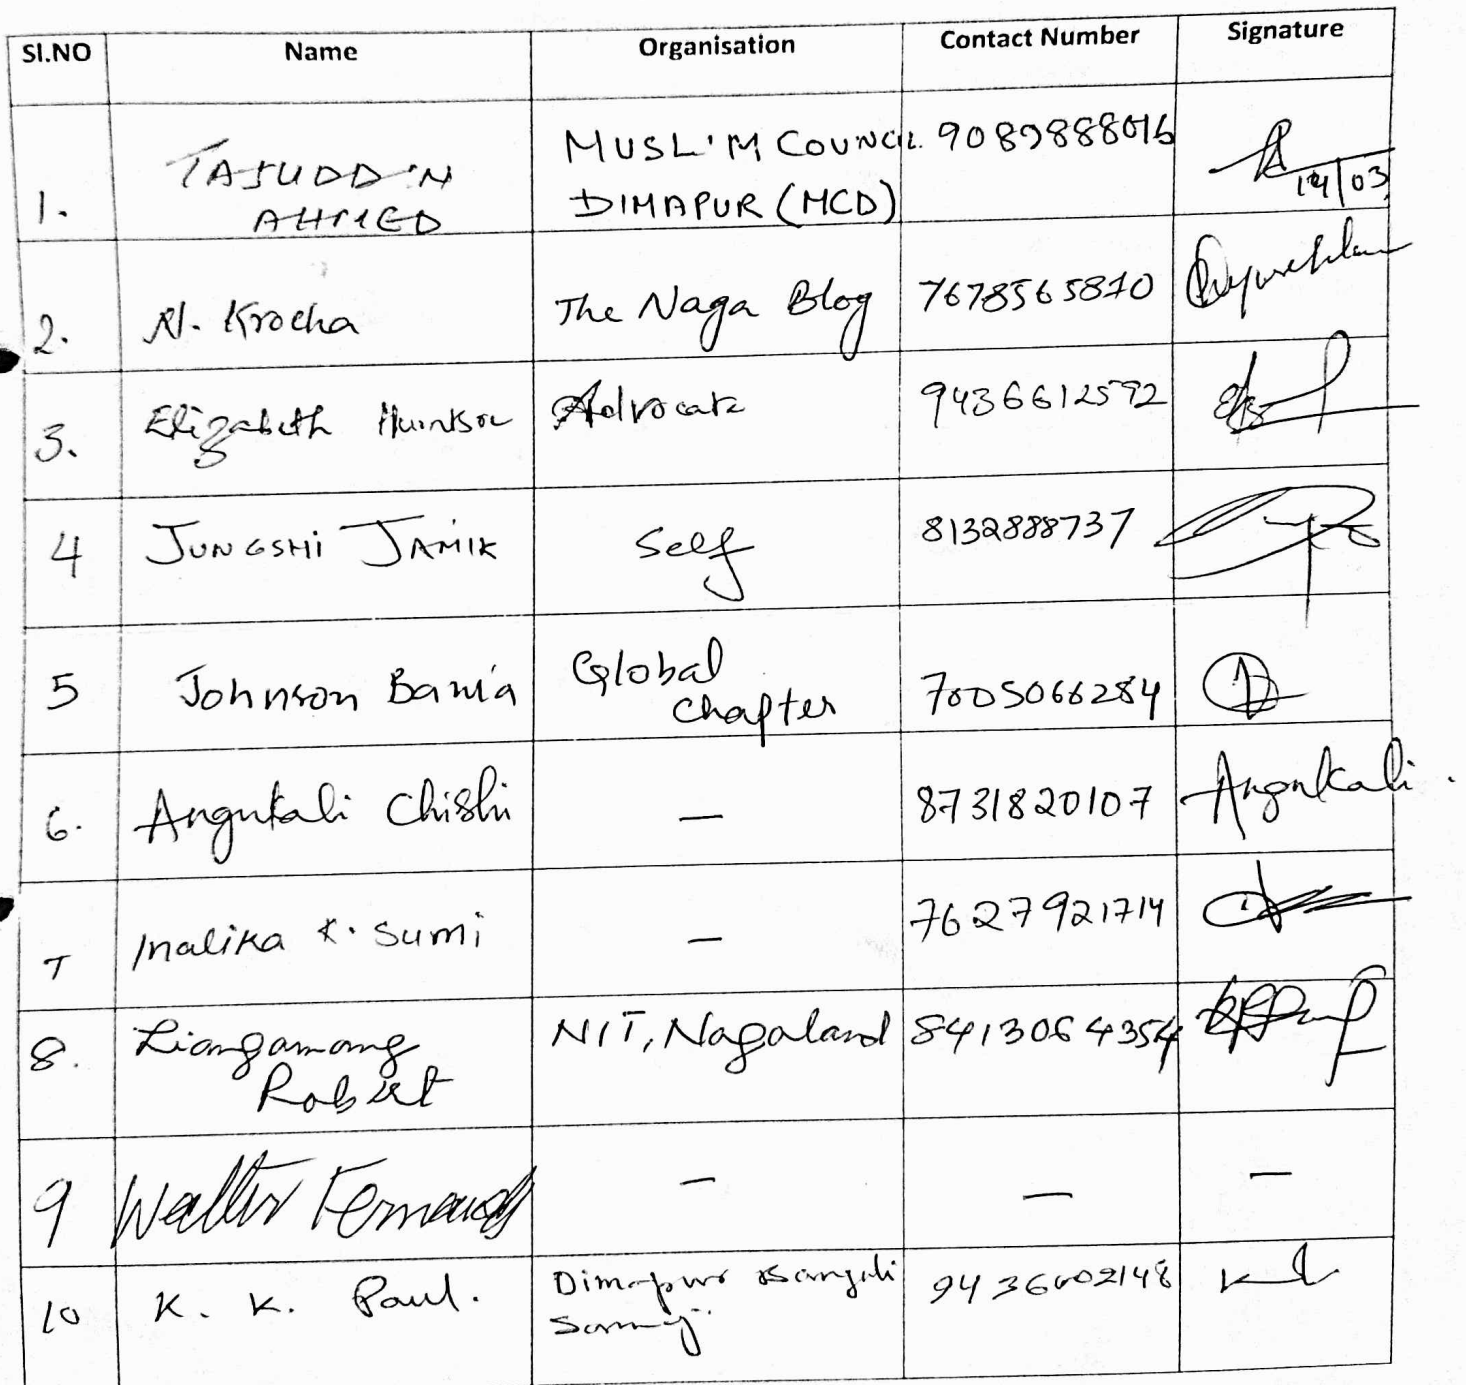 Sl.NO Name Organisation Contact Number Signature
1. TAJUDDIN AHMED MUSLIM COUNCIL DIMAPUR (MCD) 9089888016 14/03
2. N. Krocha The Naga Blog 7678565810
3. Elizabeth Advocate 9436612592
4 JUNGSHI JAMIR Self 8132888737
5 Johnson Bania Global Chapter 7005066284
6. Angukali Chishi — 8731820107 Angukali
7 Inalika K. Sumi — 7627921714
8. Liangamang Robert NIT, Nagaland 8413064354
9 Walter Fernandes — — —
10 K. K. Paul. Dimapur Bangali Samaj 9436002148